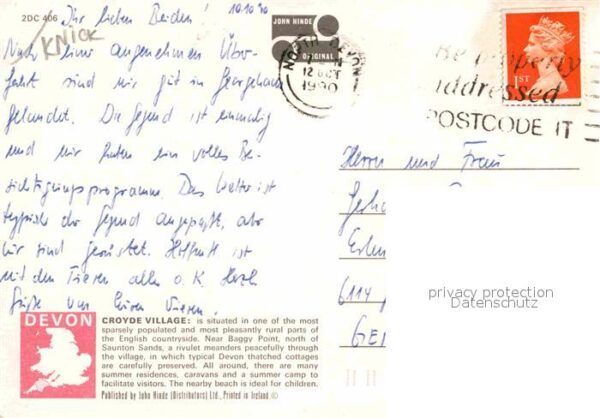 2DC 406
KNICK
Ihr lieben Beiden! 10.10.90
Nach einer angenehmen Über-
fahrt sind wir gut in Georgeham
gelandet. Die Gegend ist einmalig
und wir haben ein volles Be-
sichtigungsprogramm. Das Wetter ist
typisch der Gegend angepaßt, aber
wir sind gerüstet. Hoffentl. ist
mit den Tieren alles o.K. Herzl.
Grüße von Vieren.
JOHN HINDE
ORIGINAL
NORTH DEVON
12 OCT
1990
Be properly
addressed
POSTCODE IT
1ST
Herrn und Frau
6114
GE
privacy protection
Datenschutz
DEVON
CROYDE VILLAGE: is situated in one of the most
sparsely populated and most pleasantly rural parts of
the English countryside. Near Baggy Point, north of
Saunton Sands, a rivulet meanders peacefully through
the village, in which typical Devon thatched cottages
are carefully preserved. All around, there are many
summer residences, caravans and a summer camp to
facilitate visitors. The nearby beach is ideal for children.
Published by John Hinde (Distributors) Ltd., Printed in Ireland ©